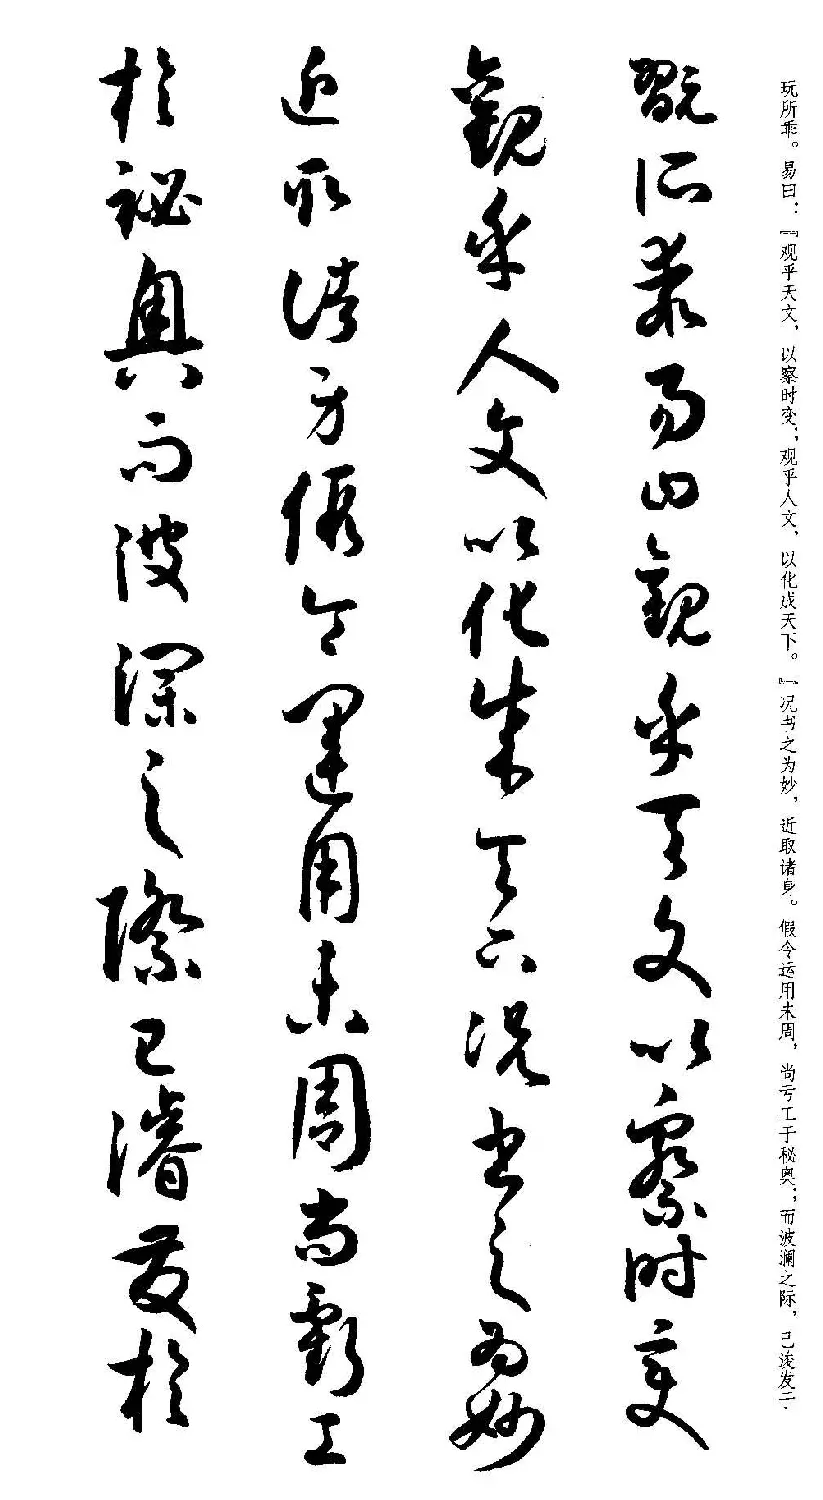 玩所乖。易曰：『观乎天文，以察时变；观乎人文，以化成天下。』况书之为妙，近取诸身。假令运用未周，尚亏工于秘奥；而波澜之际，已浚发
翫所乖易曰觀乎天文以察時變
觀乎人文以化成天下況書之為妙
近取諸身假令運用未周尚虧工
於祕奧而波瀾之際已濬發於